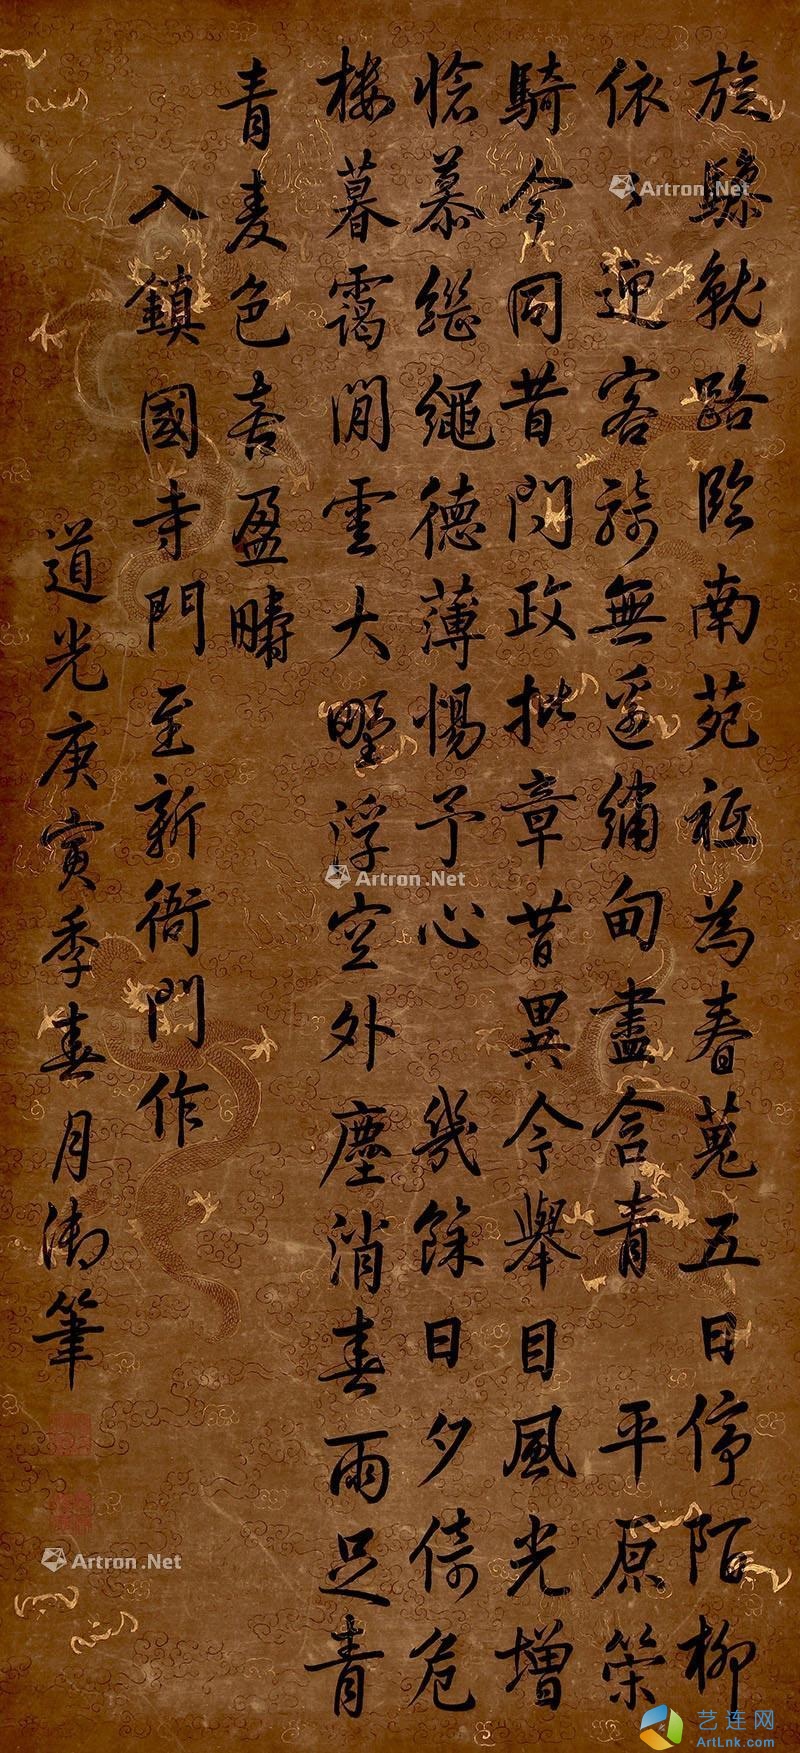 旋驂就路臨南苑祗為春蒐五日停陌柳
依〻迎客騎無邊繡甸盡含青 平原策
騎今同昔問政批章昔異今舉目風光增
愴慕繼繩德薄惕予心 幾餘日夕倚危
樓暮靄閒雲大野浮空外塵消春雨足青
青麦色喜盈疇
入鎮國寺門至新衙門作
道光庚寅季春月御筆
Artron.Net
Artron.Net
Artron.Net
艺连网
ArtLnk.com